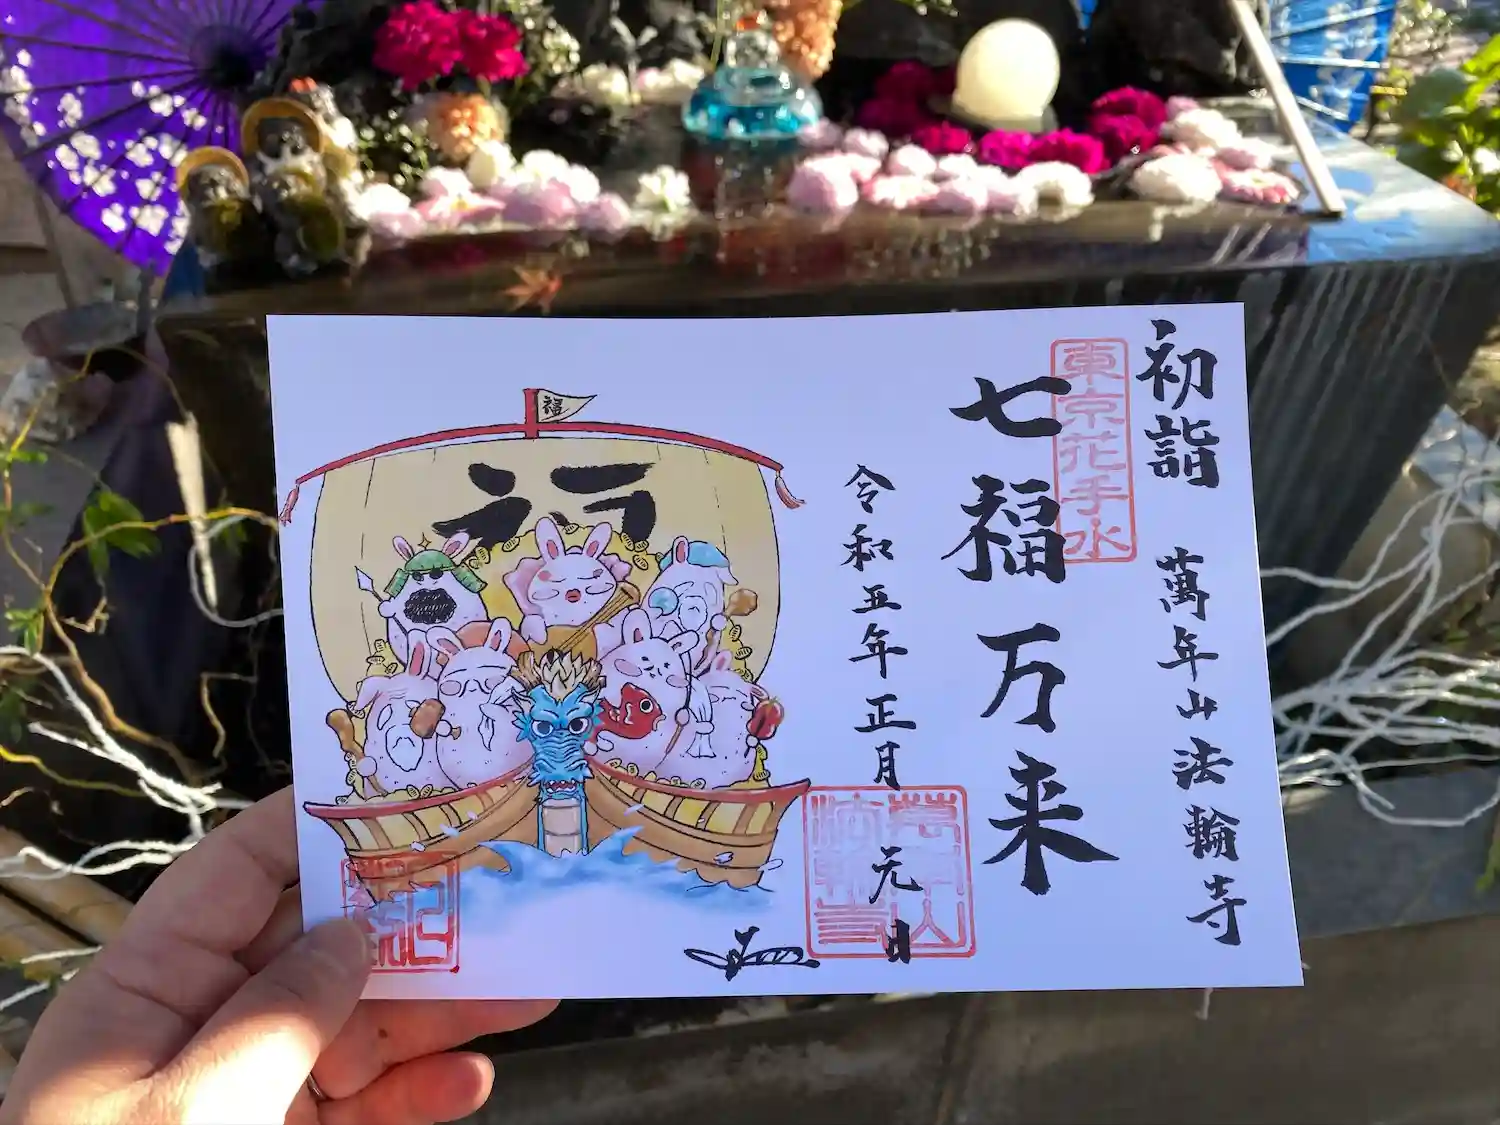 初詣 萬年山法輪寺
東京花手水
七福万来
令和五年正月元日
福